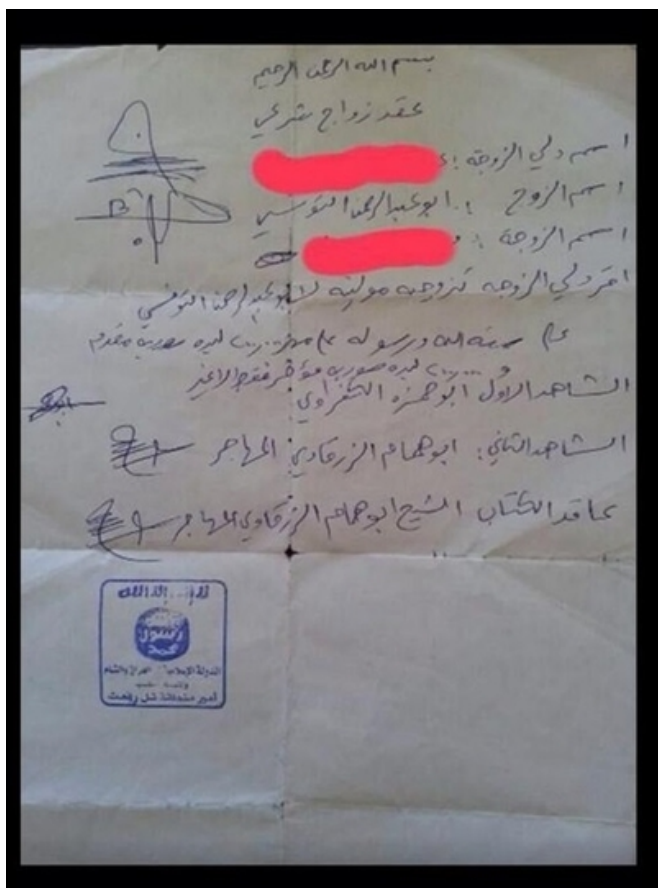 بسم الله الرحمن الرحيم
عقد زواج شرعي
اسم ولي الزوجة :
اسم الزوج : ابو عبد الرحمن التونسي
اسم الزوجة :
اقر ولي الزوجه تزويجه موليته لابو عبد الرحمن التونسي
على سنة الله ورسوله على مهر ليره سوريه مقدم
ليره سوريه مؤخر فقط لاغير
الشاهد الاول ابو حمزه
الشاهد الثاني: ابو همام الزرقاوي المهاجر
عاقد الكتاب الشيخ ابو همام الزرقاوي المهاجر
لا اله الا الله
الله
رسول
محمد
الدولة الإسلامية العراق والشام
أمير منطقة تل رفعت